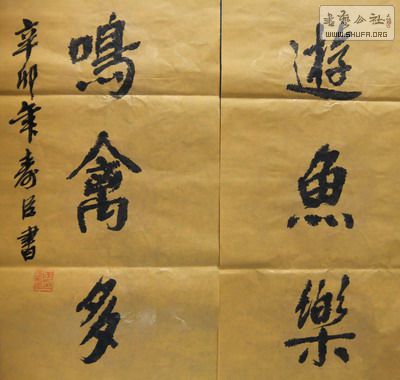 遊魚樂
鳴禽多
辛卯年壽臣書
書藝公社
WWW.SHUFA.ORG